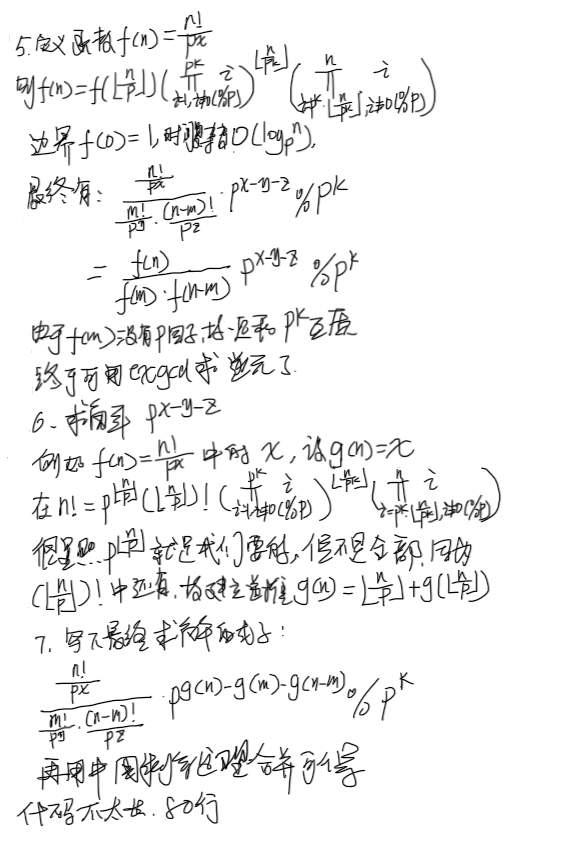 5.定义函数f(n)=n!/p^x
则f(n)=f(⌊n/p⌋)(∏_{i=1,i≢0(%p)}^{p^k} i)^{⌊n/p^k⌋}(∏_{i=p^k·⌊n/p^k⌋,i≢0(%p)}^{n} i)
边界f(0)=1,时间复杂O(log_p^n).
最终有: (n!/p^x)/((m!/p^y)·((n-m)!/p^z))·p^{x-y-z}%p^k
=f(n)/(f(m)·f(n-m)) p^{x-y-z} %p^k
由于f(m)没有p因子,故一定和p^k互质
终于可用exgcd求逆元了.
6、求解 p^{x-y-z}
例如f(n)=n!/p^x中的x,设g(n)=x
在n!=p^{⌊n/p⌋}(⌊n/p⌋)!(∏_{i=1,i≢0(%p)}^{p^k} i)^{⌊n/p^k⌋}(∏_{i=p^k⌊n/p^k⌋,i≢0(%p)}^{n} i)
很显然p^{⌊n/p⌋}就是我们要的,但不是全部,因为
(⌊n/p⌋)!中还有,故建立递推g(n)=⌊n/p⌋+g(⌊n/p⌋)
7.写下最终求解的式子:
(n!/p^x)/((m!/p^y)·((n-m)!/p^z))·p^{g(n)-g(m)-g(n-m)}%p^k
再用中国剩余定理合并可得
代码不太长.80行